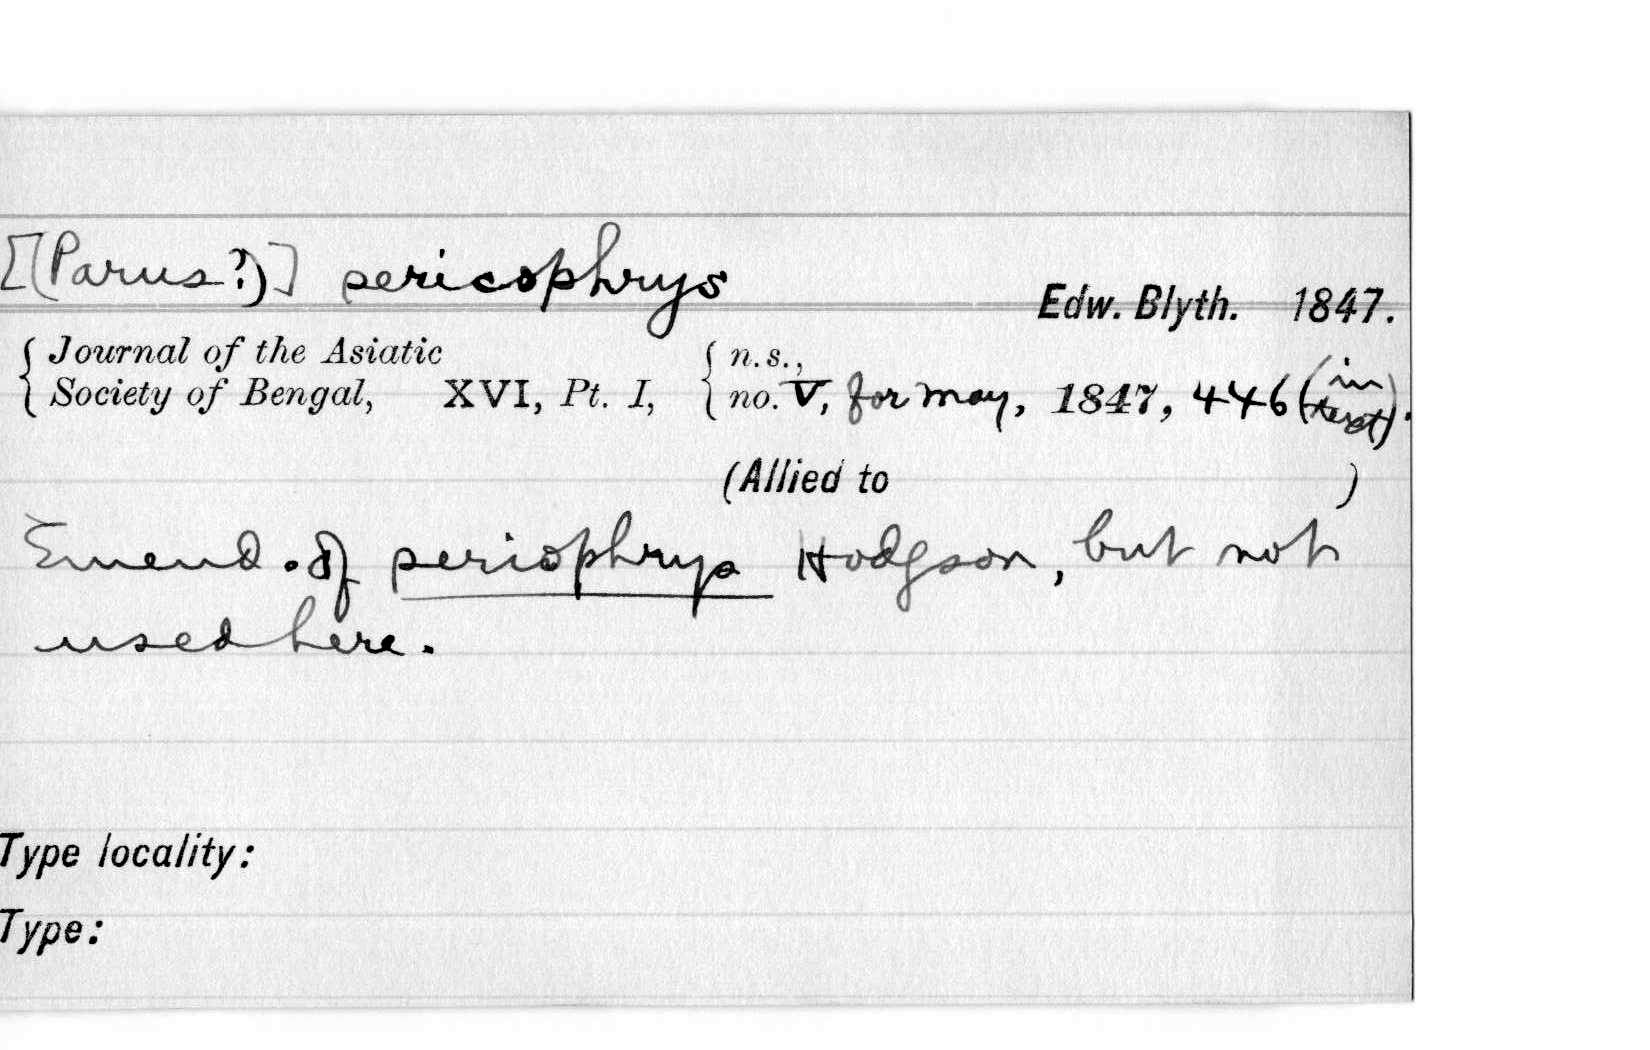 [(Parus?)] sericophrys
Edw. Blyth. 1847.
{ Journal of the Asiatic { n.s.,
Society of Bengal, XVI, Pt. I, no. V, for May, 1847, 446 (in text).
(Allied to )
Emend. of seriophrys Hodgson, but not
used here.
Type locality:
Type: